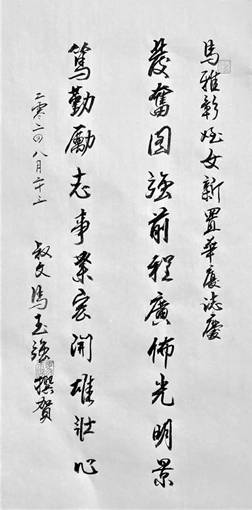 馬雅彰姪女新置華廈誌慶
發奮圖強前程廣佈光明景
篤勤勵志事業宏開雄壯心
二零二四八月二十三
叔父馬玉強撰賀